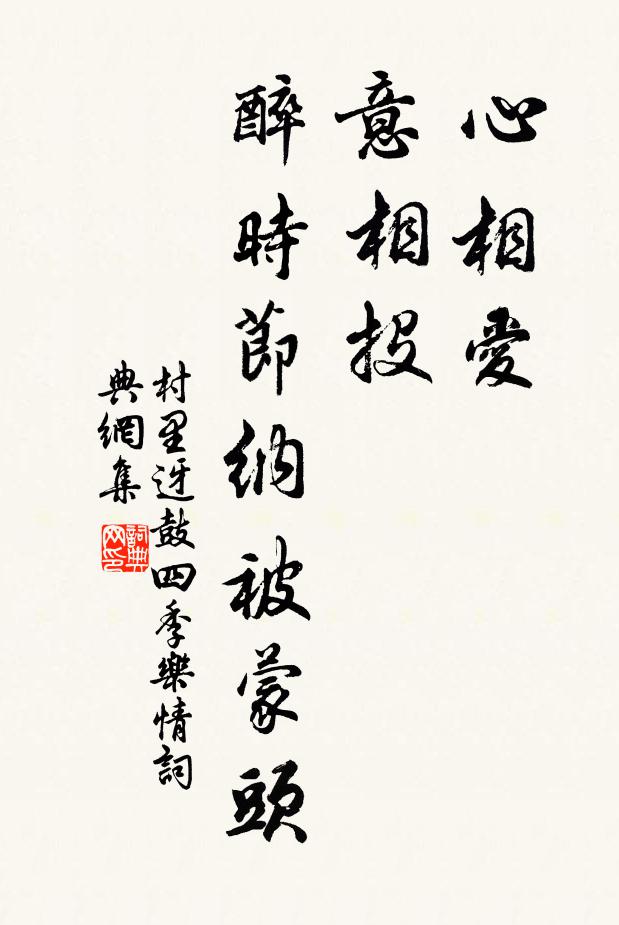 心相愛
意相投
醉時節納被蒙頭
村里迓鼓四季樂情詞
典網集
詞典
网印